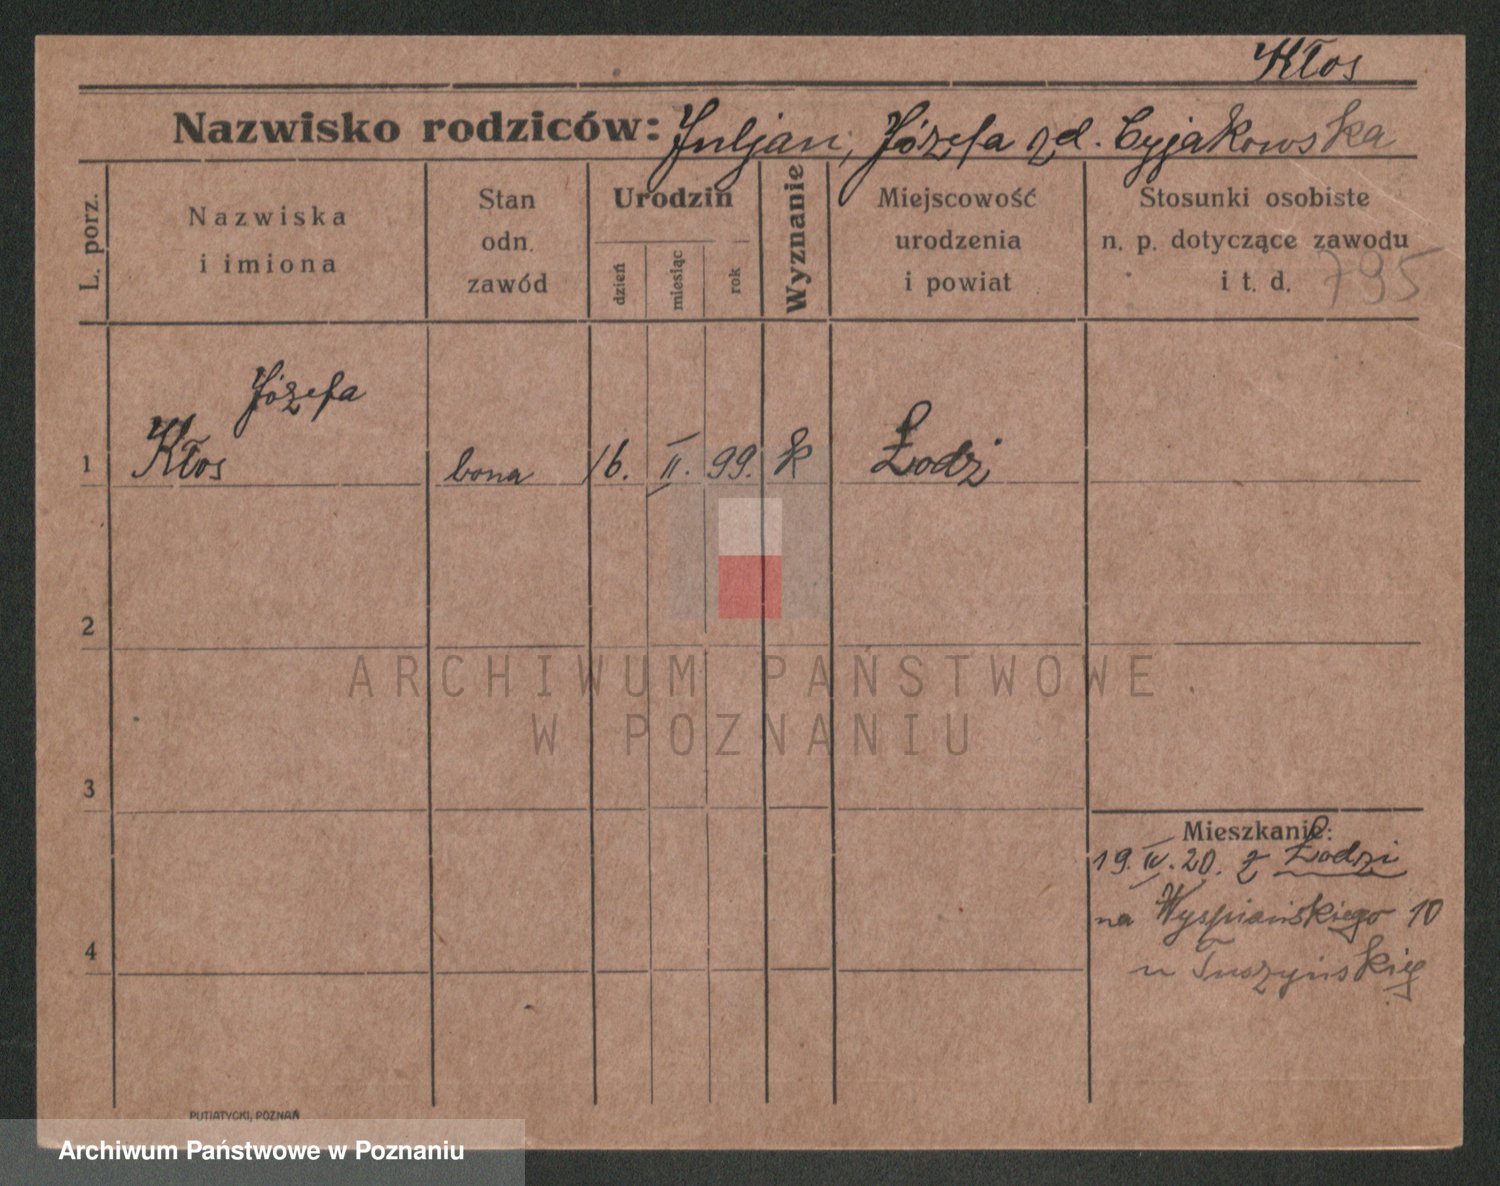 Kłos
Nazwisko rodziców: Juljan, Józefa zd. Cyjakowska
L. porz.
Nazwiska
i imiona
Stan
odn.
zawód
Urodzin
dzień
miesiąc
rok
Wyznanie
Miejscowość
urodzenia
i powiat
Stosunki osobiste
n. p. dotyczące zawodu
i t. d.
795
Józefa
1 Kłos bona 16. II. 99. k Łodzi
2
3
4
Mieszkanie:
19. IV. 20. z Łodzi
na Wyspiańskiego 10
u Tuszyńskiej
PUTIATYCKI, POZNAŃ
ARCHIWUM PAŃSTWOWE
W POZNANIU
Archiwum Państwowe w Poznaniu